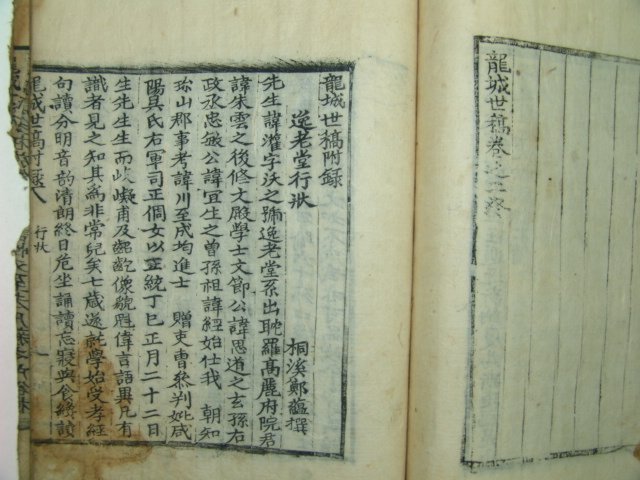 龍城世稿卷之二終
龍城世稿附錄
逸老堂行狀 桐溪鄭蘊撰
先生諱灌字沃之號逸老堂系出耽羅高麗府院君
諱末雲之後修文殿學士文節公諱思道之玄孫右
政丞忠敏公諱宜生之曾孫祖諱經始仕我 朝知
珎山郡事考諱川至成均進士 贈吏曹參判妣咸
陽具氏右軍司正女以正統丁巳正月二十二日
生先生生而岐嶷甫及齠齔像貌魁偉言語異凡有
識者見之知其爲非常兒矣七歲遂就學始受孝經
句讀分明音韵清朗終日危坐誦讀忘寢與食纔讀
龍城世稿附錄 行狀 一